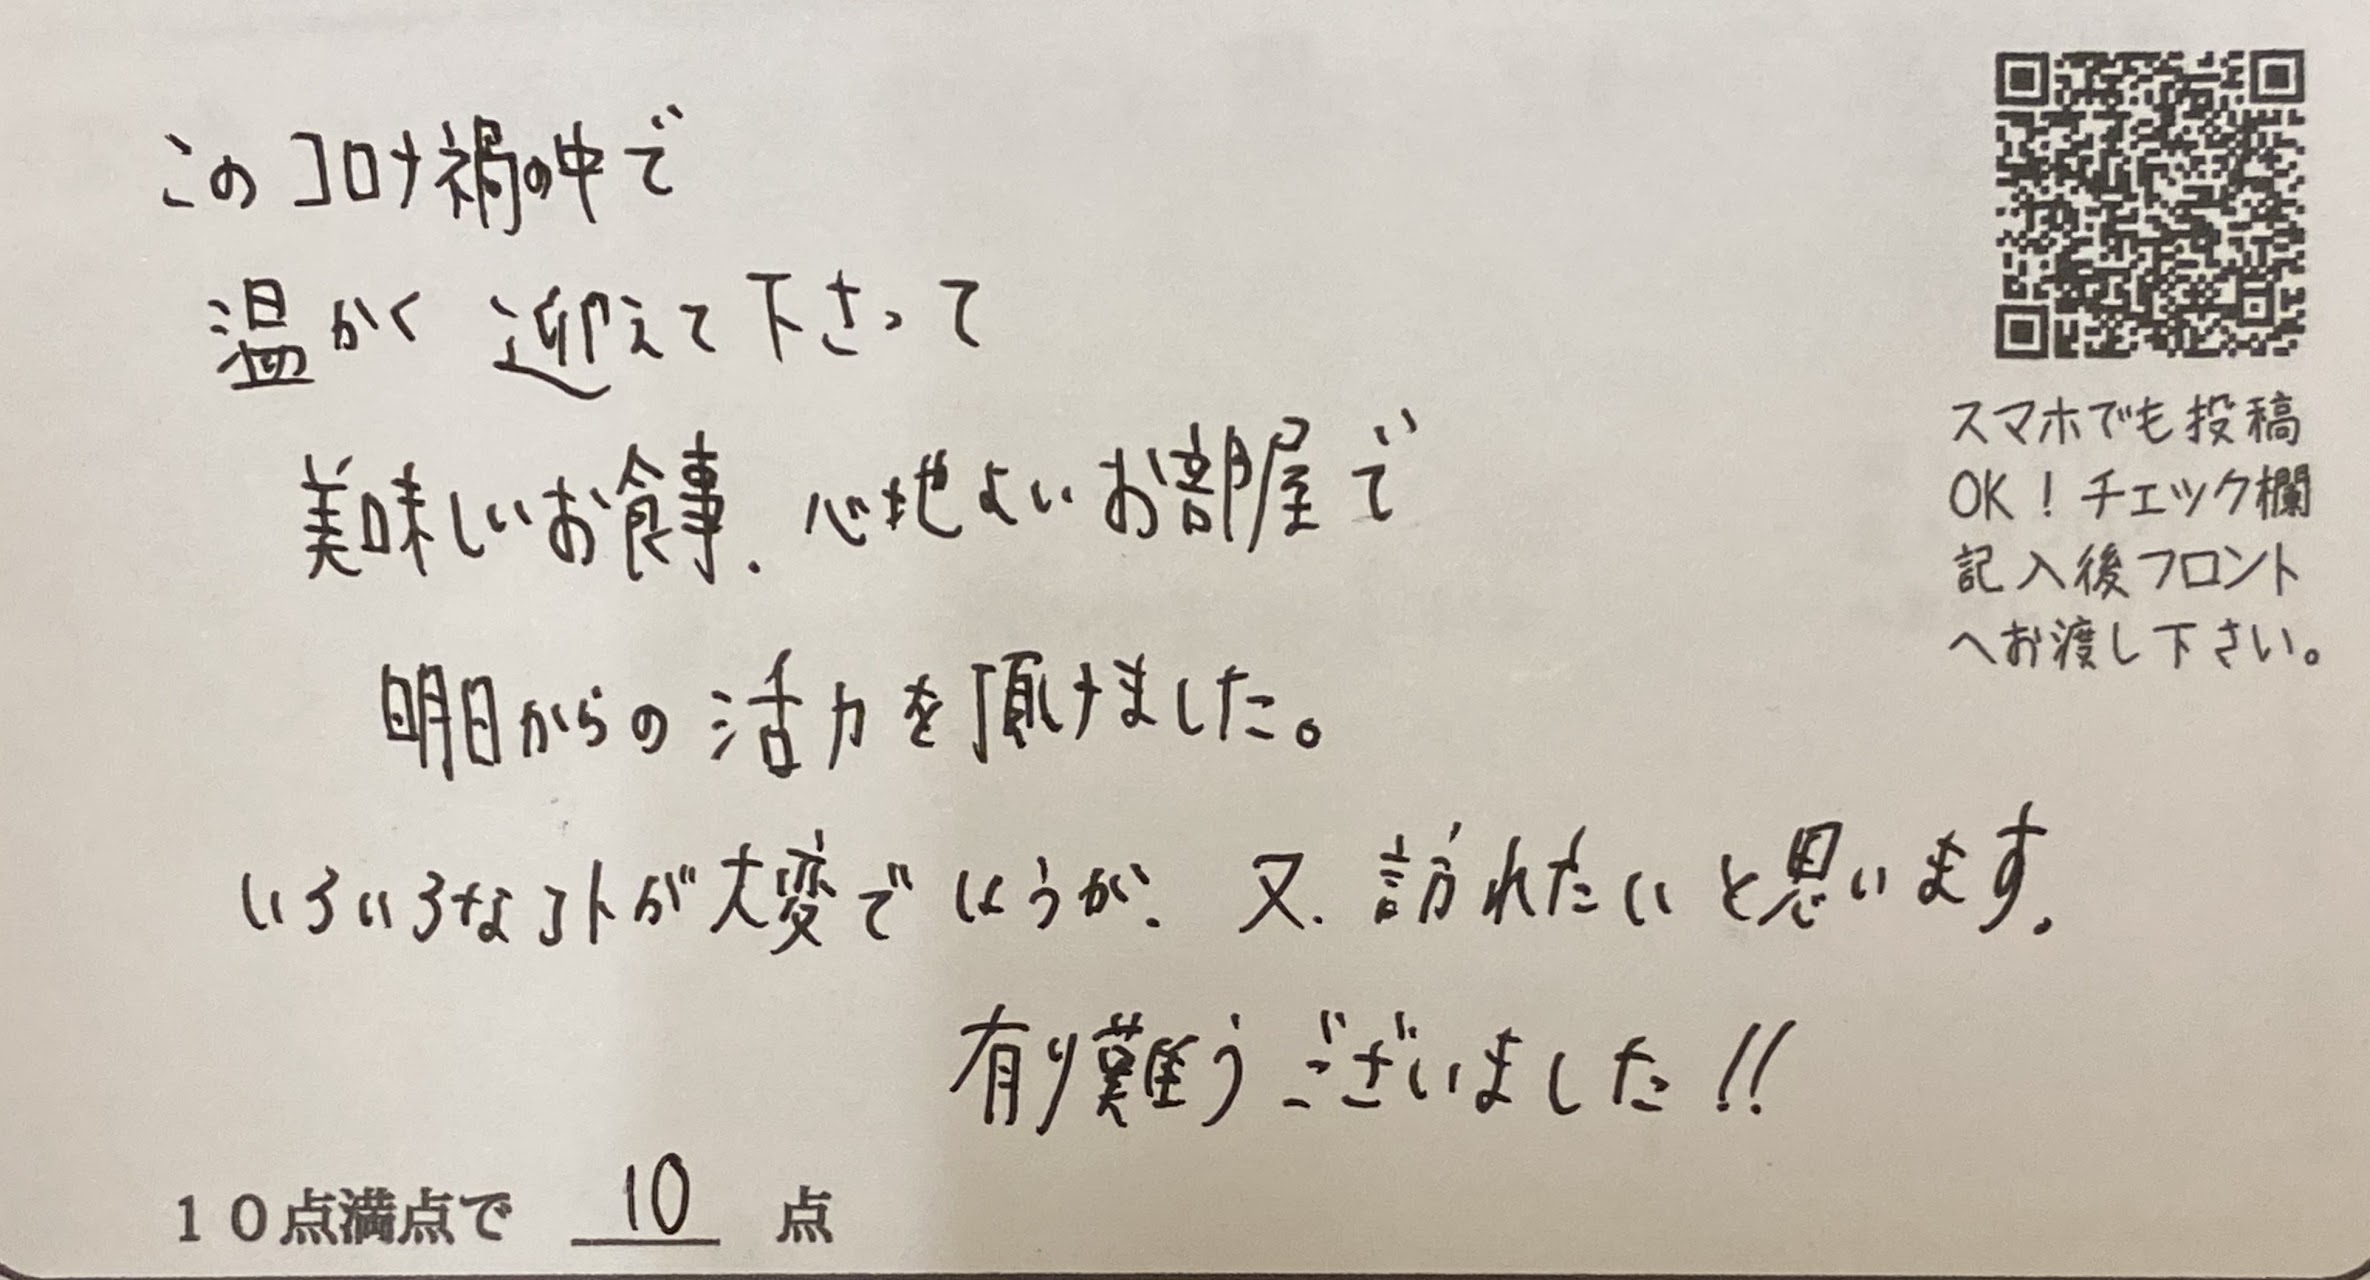 このコロナ禍の中で
温かく 迎えて下さって
美味しいお食事、心地よいお部屋で
明日からの活力を頂けました。
いろいろなコトが大変でしょうが、又、訪れたいと思います。
有り難うございました!!
10点満点で 10 点
スマホでも投稿
OK！チェック欄
記入後フロント
へお渡し下さい。